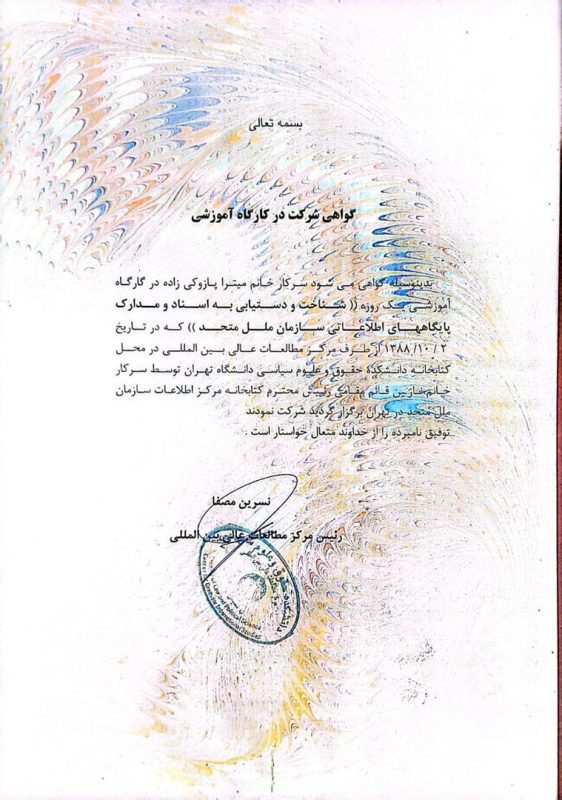 بسمه تعالی
گواهی شرکت در کارگاه آموزشی
بدینوسیله گواهی می شود سرکار خانم میترا پازوکی زاده در گارگاه
آموزشی یک روزه (( شناخت و دستیابی به اسناد و مدارک
پایگاههای اطلاعاتی سازمان ملل متحد )) که در تاریخ
۲ / ۱۰/ ۱۳۸۸ از طرف مرکز مطالعات عالی بین المللی در محل
کتابخانه دانشکده حقوق و علوم سیاسی دانشگاه تهران توسط سرکار
خانم نازنین قائم مقامی رئیس محترم کتابخانه مرکز اطلاعات سازمان
ملل متحد در تهران برگزار گردید شرکت نمودند
توفیق نامبرده را از خداوند متعال خواستار است .
نسرین مصفا
رئیس مرکز مطالعات عالی بین المللی
دانشکده حقوق و علوم
Law and Political Science
International Studies